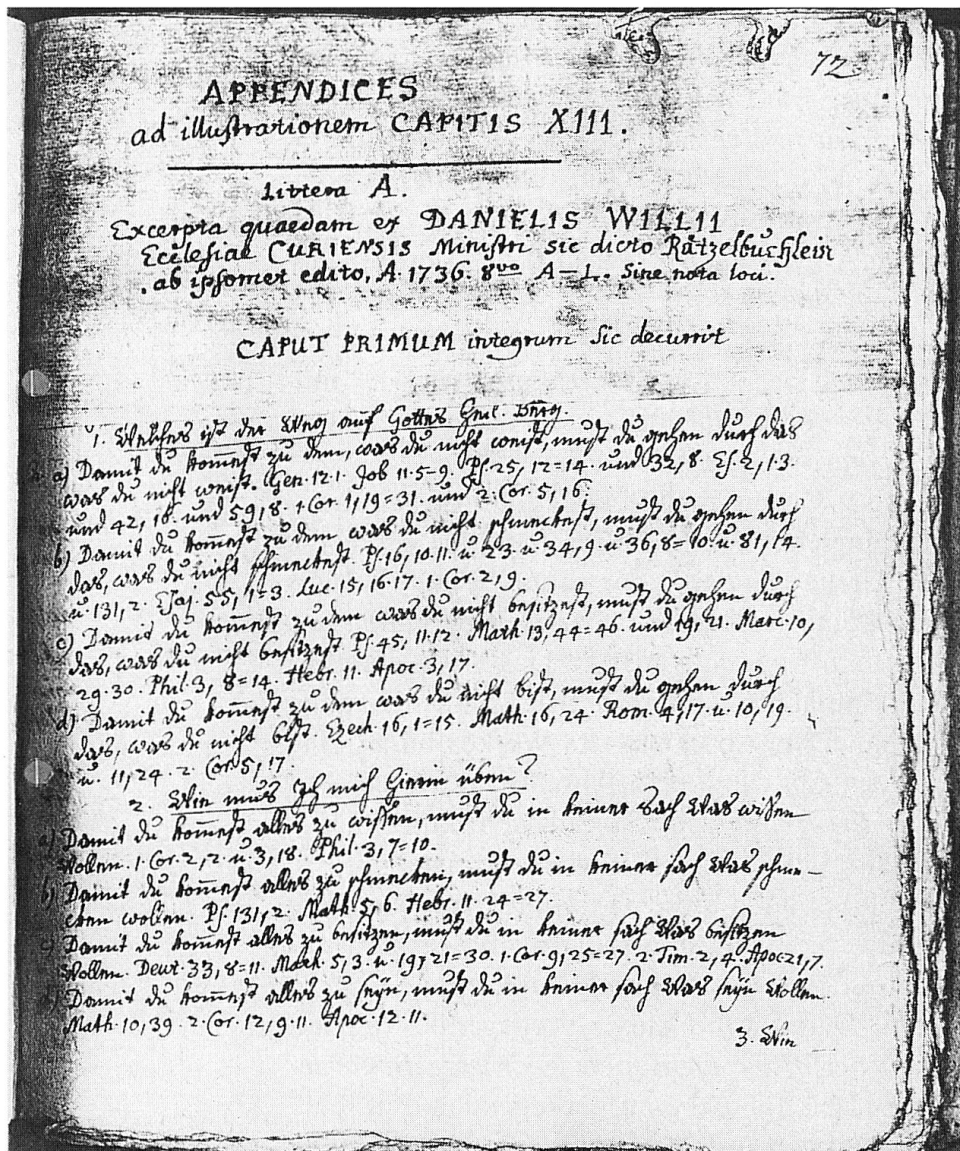 72
APPENDICES
ad illustrationem CAPITIS XIII.
Littera A.
Excerpta quaedam ex DANIELIS WILLII
Ecclesiae CURIENSIS Ministri sic dicto Rätzelbüchlein
ab ipsomet edito, A. 1736. 8vo A–L. Sine nota loci.
CAPUT PRIMUM integrum sic decurrit
1. Welches ist der Weg auf Gottes Heil. Berg.
a) Damit du kom̄est zu dem, was du nicht weist, must du gehen durch das
was du nicht weist. Gen. 12. 1. Job 11. 5-9. Ps. 25, 12=14. und 32, 8. Es. 2, 1. 3.
und 42, 16. und 59, 8. 1. Cor. 1, 19=31. und 2. Cor. 5, 16.
b) Damit du kom̄est zu dem was du nicht schmeckest, must du gehen durch
das, was du nicht schmeckest. Ps. 16, 10. 11. u. 23. u. 34, 9. u. 36, 8=10. u. 81, 14.
u. 131, 2. Esaj. 55, 1=3. Luc. 15, 16. 17. 1. Cor. 2, 9.
c) Damit du kom̄est zu dem was du nicht besitzest, must du gehen durch
das, was du nicht besitzest Ps. 45, 11. 12. Math. 13, 44=46. und 19, 21. Marc. 10,
29. 30. Phil. 3, 8=14. Hebr. 11. Apoc. 3, 17.
d) Damit du kom̄est zu dem was du nicht bist, must du gehen durch
das, was du nicht bist. Ezech. 16, 1=15. Math. 16, 24. Rom. 4, 17. u. 10, 19.
u. 11, 24. 2. Cor. 5, 17.
2. Wie mus Ich mich hierin üben?
a) Damit du kom̄est alles zu wissen, must du in keiner Sach Was wissen
Wollen. 1. Cor. 2, 2. u. 3, 18. Phil. 3, 7=10.
b) Damit du kom̄est alles zu schmecken, must du in keiner sach Was schme-
cken wollen. Ps. 131, 2. Math. 5, 6. Hebr. 11. 24=27.
c) Damit du kom̄est alles zu besitzen, must du in keiner sach Was besitzen
Wollen. Deut. 33, 8=11. Math. 5, 3. u. 19, 21=30. 1. Cor. 9, 25=27. 2. Tim. 2, 4. Apoc. 21, 7.
d) Damit du kom̄est alles zu seÿn, must du in keiner sach Was seÿn Wollen.
Math. 10, 39. 2. Cor. 12, 9. 11. Apoc. 12. 11.
3. Wie